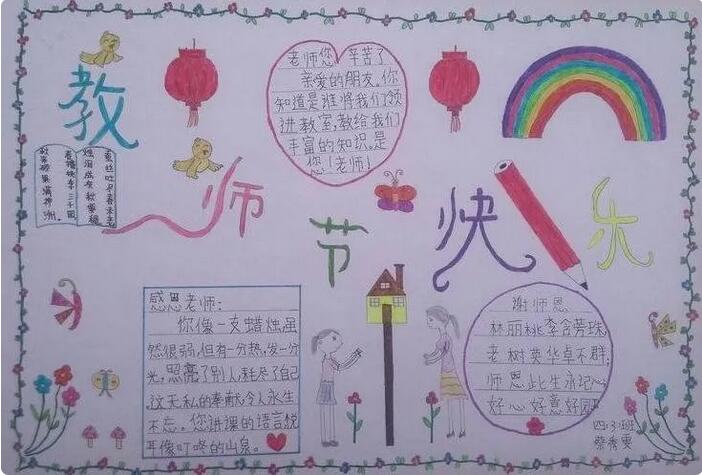 教
师
节
快
乐
老师您 辛苦了
亲爱的朋友。你
知道是谁将我们领
进教室,教给我们
丰富的知识。是
您!老师!
春蚕吐尽春未老
烛泪成灰秋更稠
春播桃李三千圃
秋来硕果满神洲。
感恩老师:
你像一支蜡烛虽
然很弱,但有一分热,发一分
光,照亮了别人,耗尽了自己
,这无私的奉献,令人永生
不忘。您讲课的语言悦
耳像叮咚的山泉。
谢师恩
林丽桃李含芳珠,
老树英华卓不群,
师恩此生永记心
好心好意好园
四.3.班